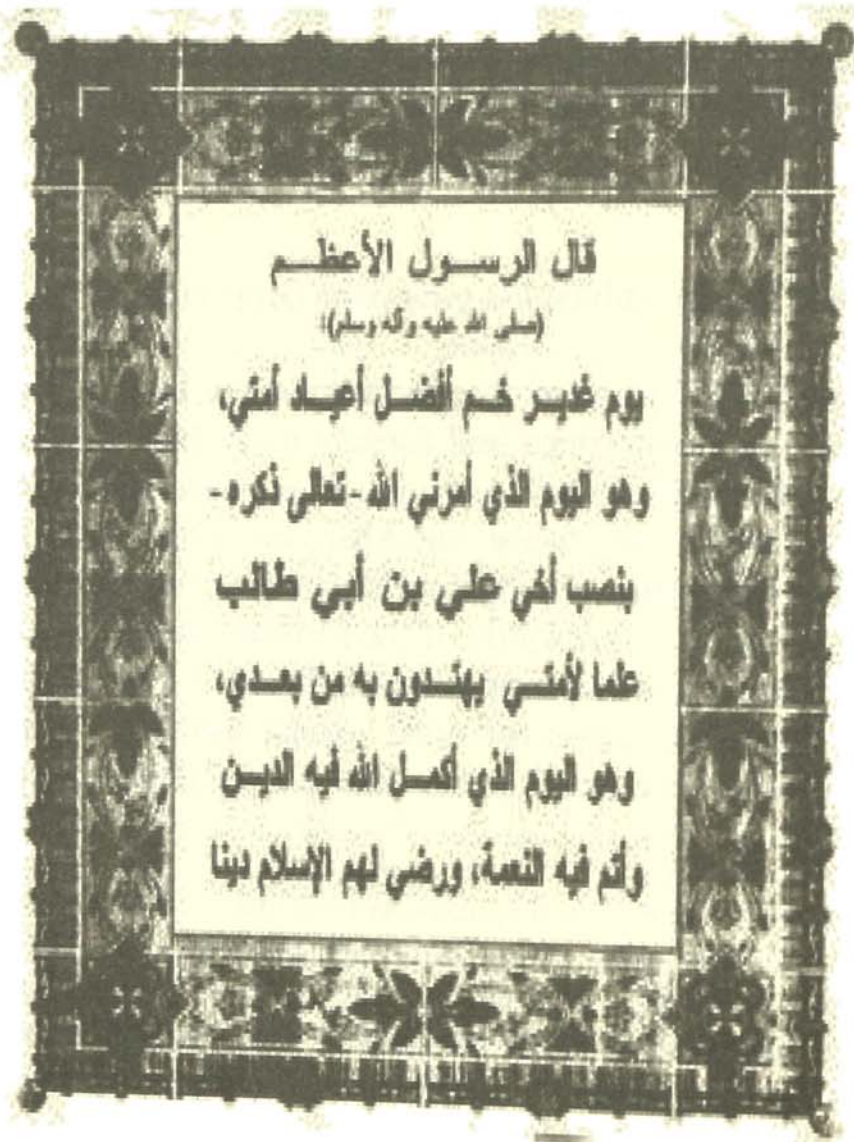 قال الرســول الأعظــم
(صلى الله عليه وآله وسلم):
يوم غديـر خـم أفضـل أعيـاد أمتي،
وهو اليوم الذي أمرني الله -تعالى ذكره-
بنصب أخي علـي بن أبي طالب
علما لأمتــي يهتـدون به من بعـدي،
وهو اليوم الذي أكمـل الله فيه الديـن
وأتم فيه النعمة، ورضي لهم الإسلام دينا